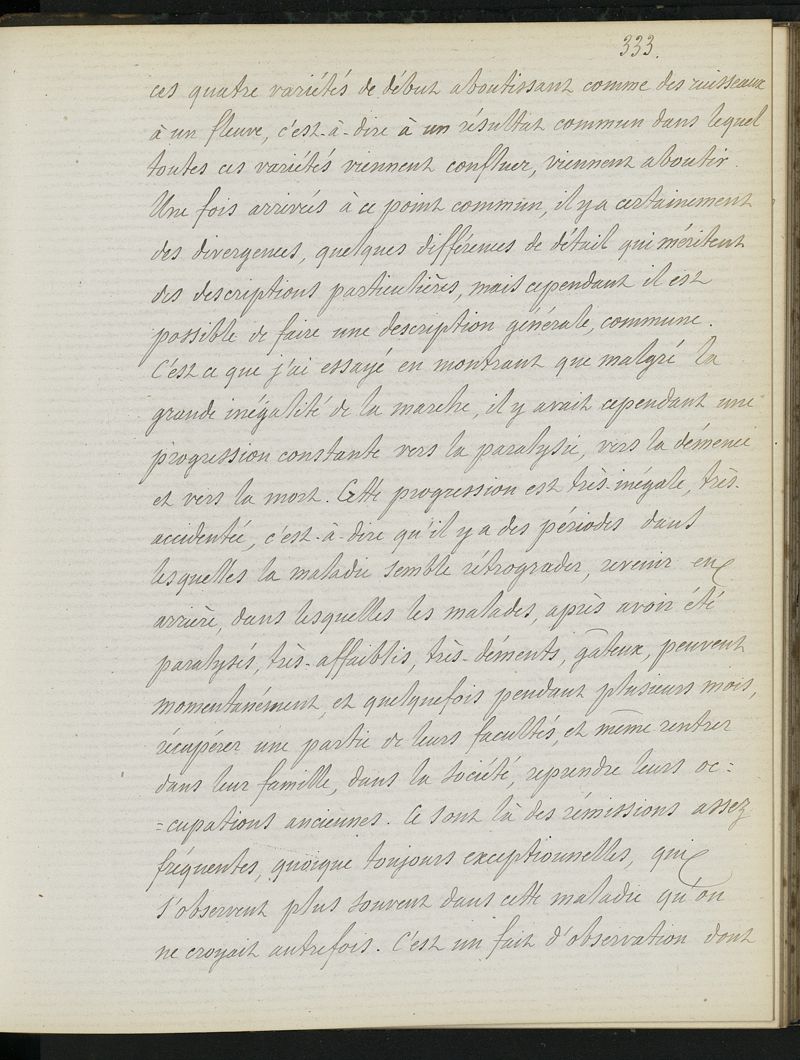 333.
ces quatre variétés de début aboutissant comme des ruisseaux
à un fleuve, c'est-à-dire à un résultat commun dans lequel
toutes ces variétés viennent confluer, viennent aboutir.
Une fois arrivés à ce point commun, il y a certainement
des divergences, quelques différences de détail qui méritent
des descriptions particulières, mais cependant il est
possible de faire une description générale, commune.
C'est ce que j'ai essayé en montrant que malgré la
grande inégalité de la marche, il y avait cependant une
progression constante vers la paralysie, vers la démence
et vers la mort. Cette progression est très-inégale, très-
accidentée, c'est-à-dire qu'il y a des périodes dans
lesquelles la maladie semble rétrograder, revenir en
arrière, dans lesquelles les malades, après avoir été
paralysés, très-affaiblis, très-déments, gâteux, peuvent
momentanément, et quelquefois pendant plusieurs mois,
récupérer une partie de leurs facultés, et même rentrer
dans leur famille, dans la société, reprendre leurs oc=
=cupations anciennes. Ce sont là des rémissions assez
fréquentes, quoique toujours exceptionnelles, qui
s'observent plus souvent dans cette maladie qu'on
ne croyait autrefois. C'est un fait d'observation dont